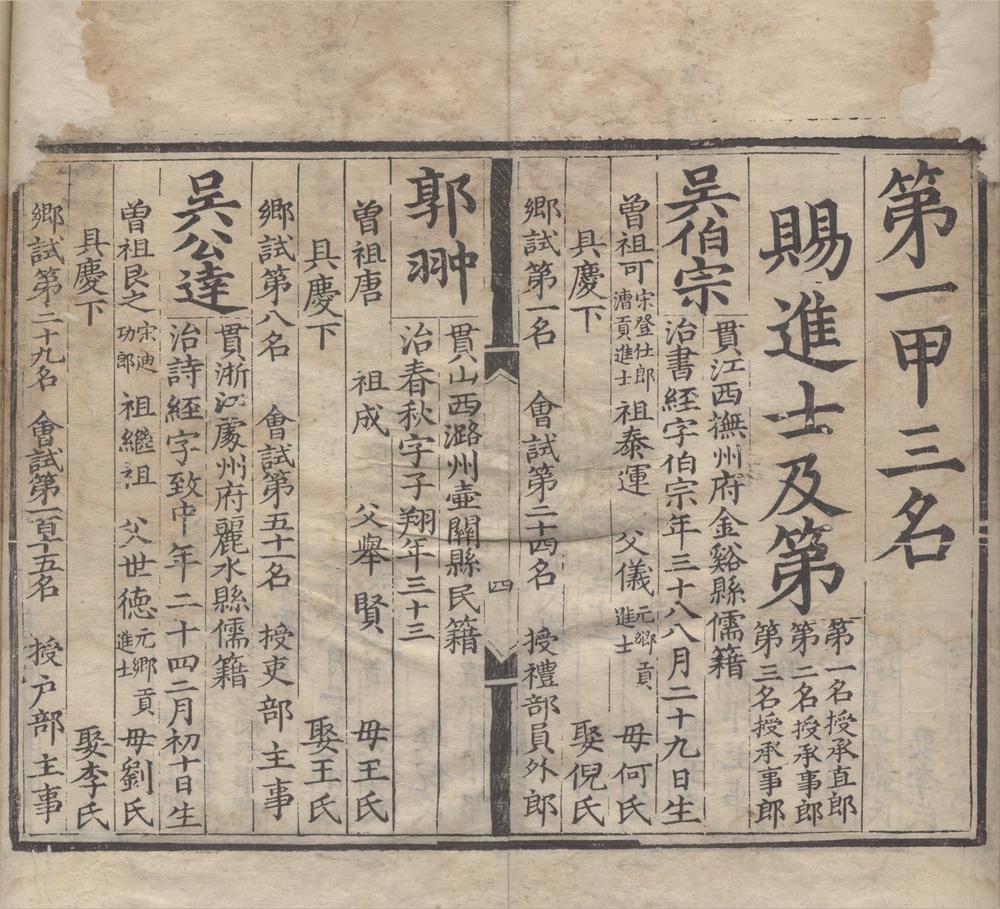 第一甲三名
賜進士及第
第一名授承直郎
第二名授承事郎
第三名授承事郎
吳伯宗
貫江西撫州府金谿縣儒籍
治書經字伯宗年三十八八月二十九日生
曾祖可宋登仕郎漕貢進士 祖泰運 父儀元鄉貢進士 母何氏
具慶下 娶倪氏
鄉試第一名 會試第二十四名 授禮部員外郎
四
郭翀
貫山西潞州壺關縣民籍
治春秋字子翔年三十三
曾祖唐 祖成 父舉賢 母王氏
具慶下 娶王氏
鄉試第八名 會試第五十一名 授吏部主事
吳公達
貫浙江處州府麗水縣儒籍
治詩經字致中年二十四二月初十日生
曾祖艮之宋迪功郎 祖繼祖 父世德元鄉貢進士 母劉氏
具慶下 娶李氏
鄉試第二十九名 會試第一百十五名 授户部主事